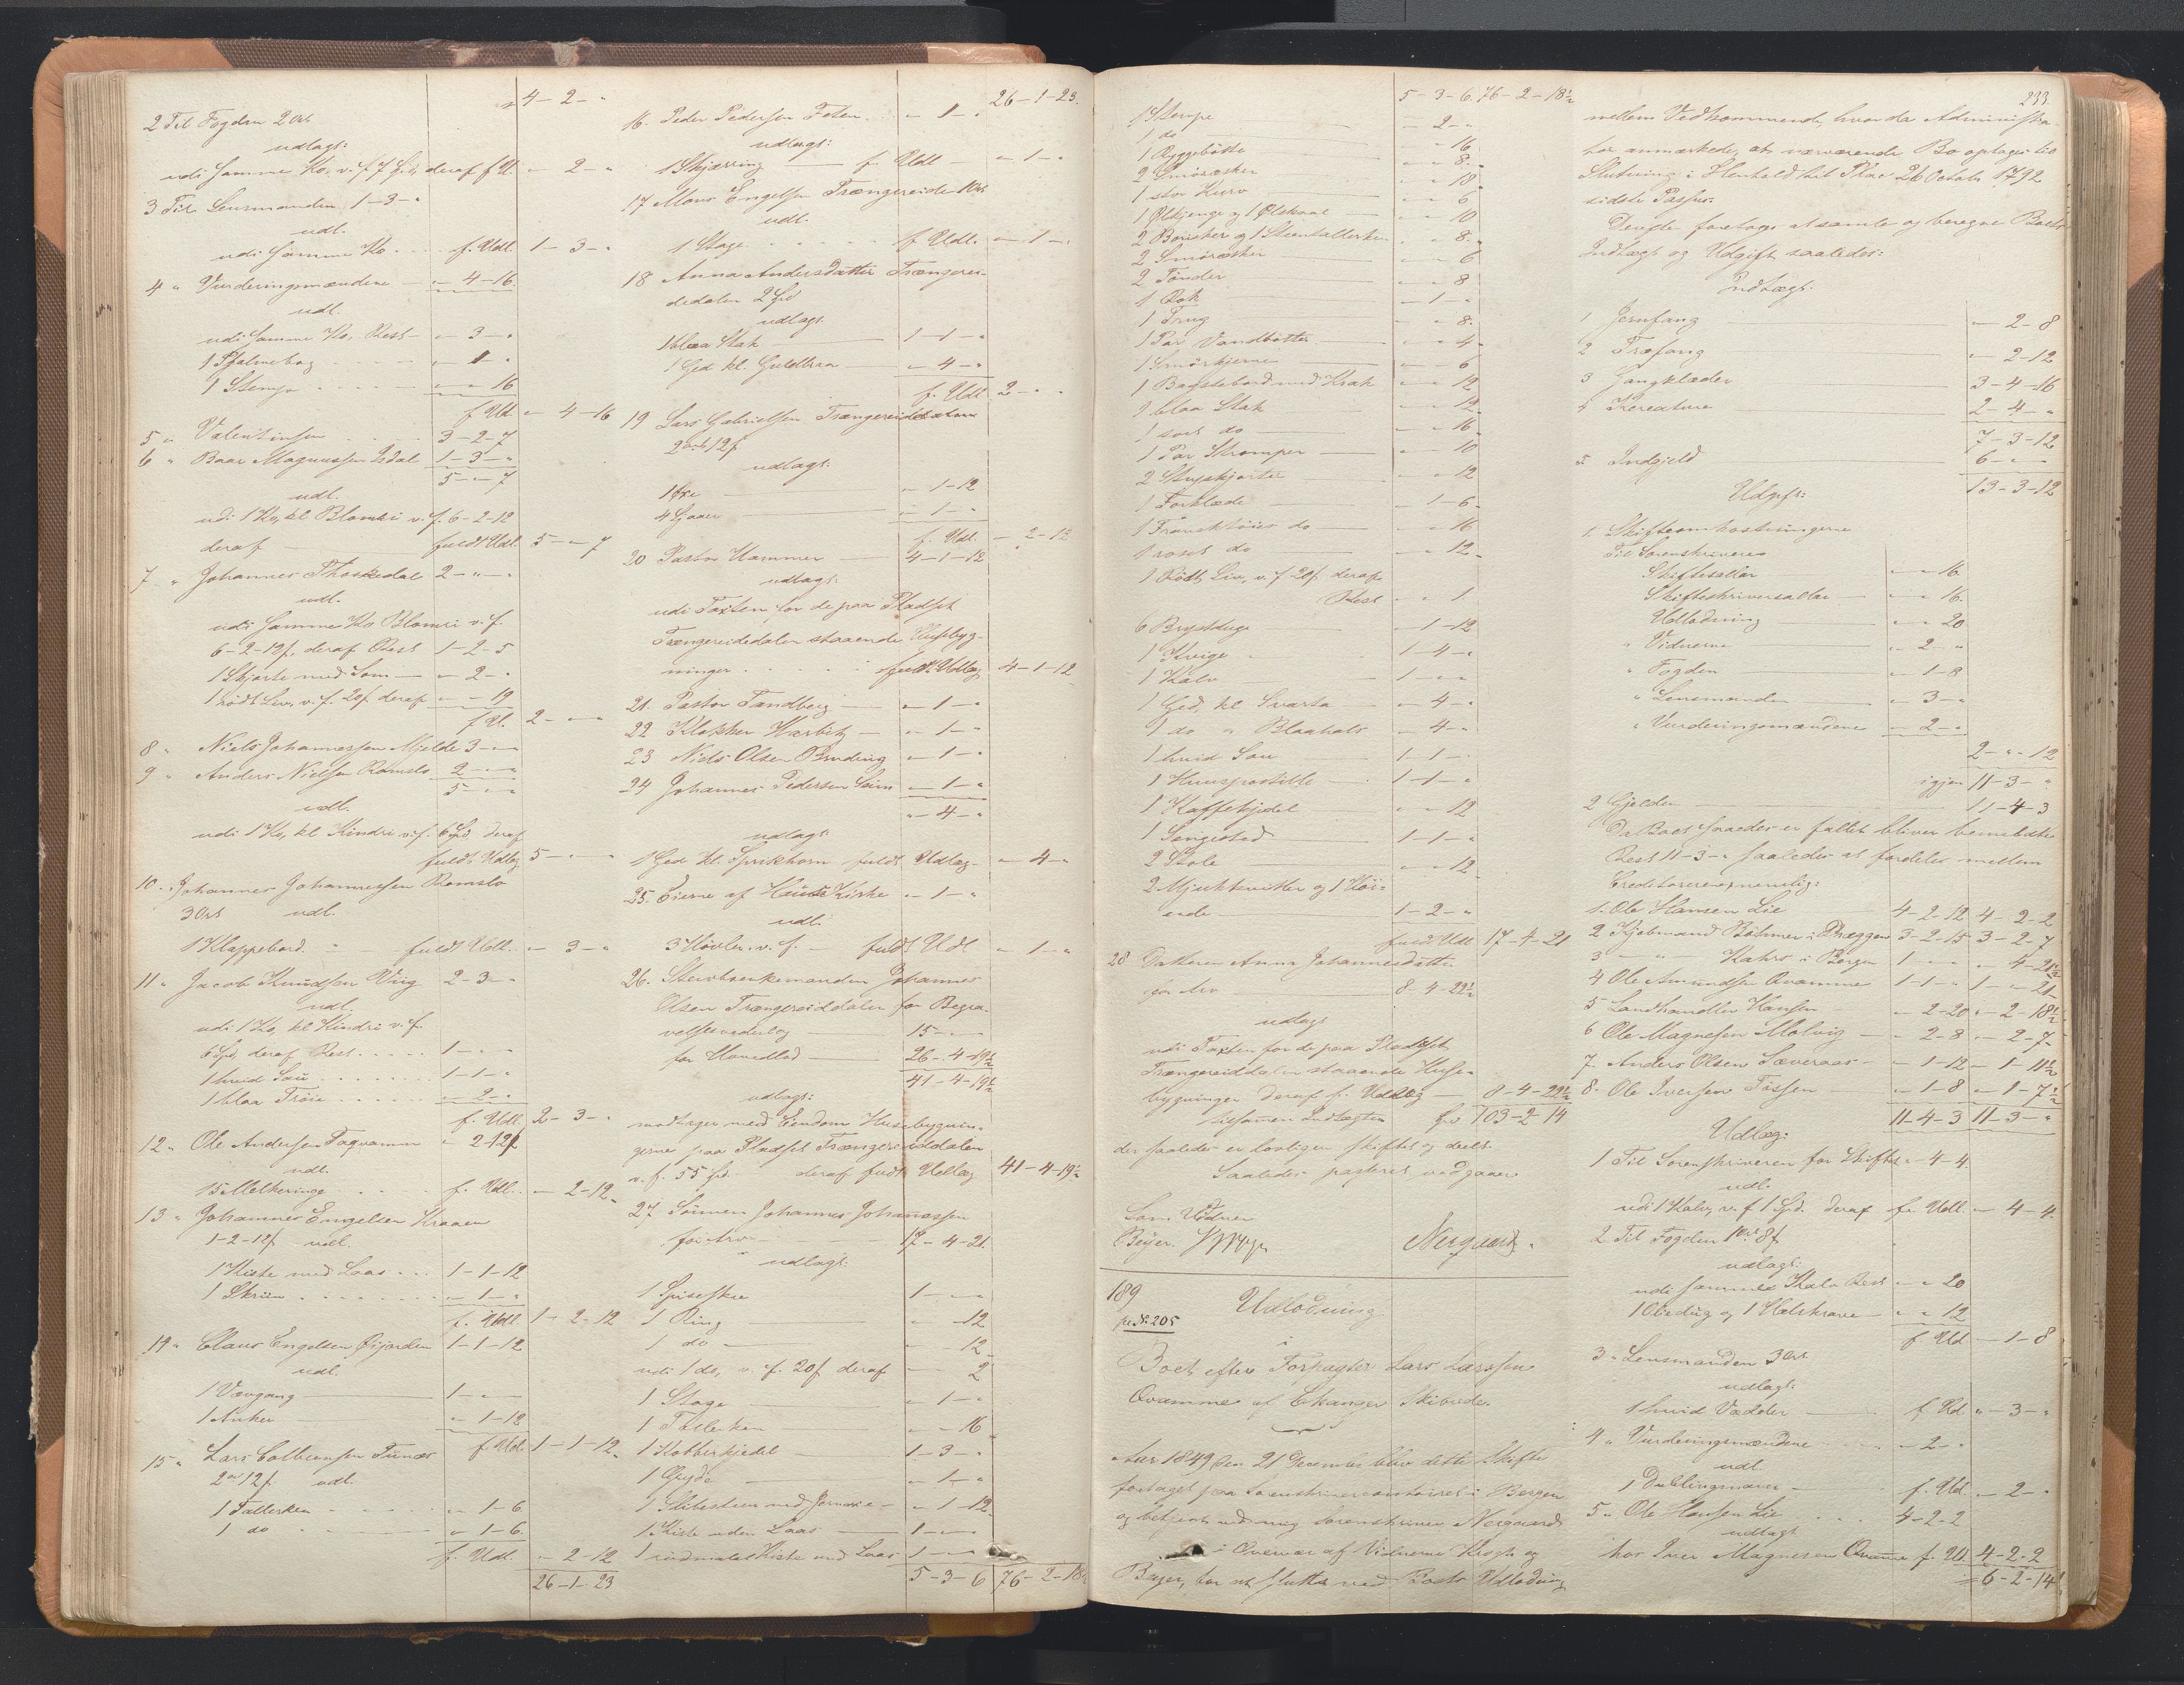 4 - 2 - "
2 Til Fogden 2 Ort
udlagt:
udi samme Ko, v. f. 7 Spd, deraf f. Ul. " - 2 - "
3 Til Lensmanden 1 - 3 - "
udl.
udi samme Ko . . f. Udl. 1 - 3 - "
4 " Vurderingsmændene " - 4 - 16
udl.
udi samme Ko, Rest " - 3 - "
1 Psalmebog " - 1 - "
1 Stempe " - " - 16
f. Udl " - 4 - 16
5 " Valentinsen 3 - 2 - 7
6 " Baar Magnussen Isdal 1 - 3 - "
5 - " - 7
udl.
udi 1 Ko, kl Blomri v. f. 6 - 2 - 12
deraf fuldt Udl. 5 - " - 7
7 " Johannes Thoskedal 2 - " - "
udl.
udi samme Ko Blomri v. f.
6 - 2 - 12 f. deraf Rest 1 - 2 - 5
1 Skjorte med Som " - 2 - "
1 rødt Liv, v. f. 20 f. deraf " - " - 19
f. Ul. 2 - " - "
8 " Niels Johannessen Mjelde 3 - " - "
9 " Anders Nielsen Romslo 2 - " - "
5 - " - "
udl.
udi 1 Ko, kl Kindri v. f. 6 Spd, deraf
fuldt Udlæg 5 - " - "
10 " Johannes Johannessen Romslo
3 Ort udl.
1 Klappebord. " fuldt Udl. " - 3 - "
11 " Jacob Knudsen Viig 2 - 3 - "
udl.
udi 1 Ko, kl Kindri v. f.
6 Spd, deraf Rest 1 - " - "
1 hvid Sau 1 - 1 - "
1 blaa Trøie " - 2 - "
f. Udl. 2 - 3 - "
12 " Ole Andersen Fagvamm " - 2 - 12 f
udl.
15 Melkeringe f. Udl. " - 2 - 12
13 " Johannes Engelsen Kraaen
1 - 2 - 12 f. udl.
1 Kiste med Laas 1 - 1 - 12
1 Skriin " - 1 - "
f. Udl 1 - 2 - 12
14 " Claus Engelsen Øijorden 1 - 1 - 12
udl.
1 Vævgang 1 - " - "
1 Anker " - 1 - 12
f. Udl. 1 - 1 - 12
15 " Lars Colbeensen Tunæs
2 ort 12 f. udl.
1 Tallerken " - 1 - 6
1 do " - 1 - 6.
f. Udl. " - 2 - 12
26 - 1 - 23
26 - 1 - 23.
16. Peder Pedersen Foten " - 1 - "
udlagt:
1 Skjæring f. Udl " - 1 - "
17 Mons Engelsen Trængereide 1 Ort
udl.
1 Stage f. Udl. " - 1 - "
18 Anna Andersdatter Trængerei-
dedalen 2 Spd
udlagt.
1 blaa Stak 1 - 1 - "
1 Ged kl. Guldbraa " - 4 - "
f. Udl 2 - " - "
19 Lars Gabrielsen Trængereiddalen
2 ort 12 f
udlagt.
1 Øxe " - 1 - 12
4 Gjaar " - 1 - "
f. Udl. " - 2 - 12
20 Pastor Hammer 4 - 1 - 12
udlagt:
udi Taxten for de paa Pladset
Trængereidedalen staaende Husebyg-
ninger fuldt Udlæg 4 - 1 - 12
21. Pastor Tandberg " - 1 - "
22 Klokker Harbitz " - 1 - "
23 Niels Olsen Bruding " - 1 - "
24 Johannes Pedersen Seim " - 1 - "
" - 4 - "
udlagt:
1 Ged kl. Sprikhorn fuldt Udlæg " - 4 - "
25. Eierne af Hauts Kirke " - 1 - "
udl.
3 Høvler v. f. fuldt Udl " - 1 - "
26. Sterbsenkemanden Johannes
Olsen Trængereiddalen for Begra-
velsesvederlag 15 - " - "
for Hovedlod 26 - 4 - 19½
41 - 4 - 19½
udlagt:
modtager med Eiendom Husebygnin-
gerne paa Pladset Trængereiddalen
v. f. 55 Spd. deraf fuldt Udlæg 41 - 4 - 19½
27. Sønnen Johannes Johannessen
for Arv 17 - 4 - 21.
udlagt:
1 Spiseskee 1 - " - "
1 Ring " - " - 12
1 do " - " - 12
udi 1 do, v. f. 20 f deraf " - " - 2
1 Stage " - 1 - "
1 Tallerken " - " - 16
1 Kobberkjedel 1 - 3 - "
1 Gryde " - 1 - "
1 Slibesteen med Jernarie " - 1 - 12
1 Kiste uden Laas 1 - " - "
1 rødmalet Kiste med Laas 1 - " - "
5 - 3 - 6 76 - 2 - 18½
5 - 3 - 6. 76 - 2 - 18½
1 Stempe " - 2 - "
1 do " - " - 16
1 Ryggebøtte " - " - 8
2 Smøræsker " - " - 18
1 stor Kurv " - " - 6
1 Ølkjenge og 1 Ølskaal " - " - 10
2 Bousker og 1 Steentallerken " - " - 8
2 Smøræsker " - " - 6
2 Tønder " - " - 8
1 Rok " - 1 - "
1 Trug " - " - 8
1 Par Vandbøtter " - " - 4
1 Smørkjerne " - " - 6
1 Bagstebord med Krak " - " - 12
1 blaa Stak " - " - 12
1 sort do " - " - 16
1 Par Strømper " - " - 10
2 Strieskjorter " - " - 12
1 Forklæde " - 1 - 6
1 Fransktøies do " - " - 16
1 roset do " - " - 12
1 Rødt Liv, v. f 20 f. deraf
Rest " - " - 1
6 Brystduge " - 1 - 12
1 Kvige 1 - 4 - "
1 Kalv 1 - " - "
1 Ged, kl Svarta " - 4 - "
1 do " Blaahals " - 4 - "
1 hvid Sau 1 - 1 - "
1 Huuspostille 1 - 1 - "
1 Kaffekjedel " - " - 12
1 Sengested 1 - 1 - "
2 Stole " - " - 12
2 Mjuktvætter og 1 Høi-
ende 1 - 2 - "
fuldt Udl 17 - 4 - 21
28 Datteren Anna Johannesdatter
for Arv 8 - 4 - 22½
udlagt
udi Taxten for de paa Pladset
Trængereiddalen staaende Huse-
bygninger deraf f. Udlæg 8 - 4 - 22½
Tilsamen Indtægten Spd 103 - 2 - 14
der saaledes er lovligen skiftet og deelt.
Saaledes passeret vedgaaer
Som Vidner
Beyer. Nergaard.
189
pr No 205
Udlodning
i
Boet efter Forpagter Lars Larssen
Qvamme af Ekanger Skibrede.
Aar 1849 den 21 December blev dette Skifte
foretaget paa Sorenskrivercontoiret i Bergen
og betjent ved mig Sorenskriver Nergaard
i Overvær af Vidnerne Krogh og
Beyer, for at slutte ved Boets Udlodning
233.
mellem Vedkommende, hvorda Administra-
tor anmærkede, at nærværende Bo optages til
Slutning i Henhold til Plac 26 October 1792
sidste Passus.
Dernæst foretoges at samle og beregne Boets
Indtægt og Udgift saaledes:
Indtægt.
1 Jernfang " - 2 - 8
2 Træfang " - 2 - 12
3 Gangklæder 3 - 4 - 16
4 Kreature 2 - 4 - "
7 - 3 - 12
5. Indgjeld 6 - " - "
13 - 3 - 12
Udgift:
1. Skifteomkostningerne
Til Sorenskriveren
Skiftesallær " - " - 16
Skifteskriversallær " - " - 16.
Udlodning " - " - 20
" Vidnerne " - 2 - "
" Fogden " - 1 - 8
" Lensmanden " - 3 - "
" Vurderingsmændene " - 2 - "
2 - " - 12
igjen 11 - 3 - "
2 Gjelden 11 - 4 - 3
Da Boet saaledes er fallit bliver bemeldte
Rest 11 - 3 - " saaledes at fordeles mellem
Creditorerne nemlig:
1. Ole Hansen Lie 4 - 2 - 12 4 - 2 - 2
2 Kjøbmand Böhmer i Bræggen 3 - 2 - 15 3 - 2 - 7
3 " Kahrs i Bergen 1 - " - " " - 4 - 21½
4 Ole Amundsen Qvamme 1 - 1 - " 1 - " - 21
5 Landhandler Hansen " - 2 - 20 " - 2 - 18½
6 Ole Magnesen Molvig " - 2 - 8 " - 2 - 7
7. Anders Olsen Sæveraas " - 1 - 12 " - 1 - 11½
8. Ole Iversen Tossen " - 1 - 8 " - 1 - 7½
11 - 4 - 3 11 - 3 - "
Udlæg:
1 Til Sorenskriveren for Skiftet " - 4 - 4
udl.
udi 1 Kalv, v. f 1 Spd. deraf f. Udl. " - 4 - 4
2 Til Fogden 1 ort 8 f
udlagt:
udi samme Kalv Rest " - " - 20
1 Olædug og 1 Halskrave " - " - 12
f. Udl " - 1 - 8
3 " Lensmanden 3 Ort
udlagt:
1 hvid Vædder f. Udl " - 3 - "
4 " Vurderingsmændene " - 2 - "
udl.
1 Dublingsnaver f. Udl. " - 2 - "
5 " Ole Hansen Lie 4 - 2 - 2
udlagt
hos Iver Magnesen Qvamme f. Udl. 4 - 2 - 2
6 - 2 - 14